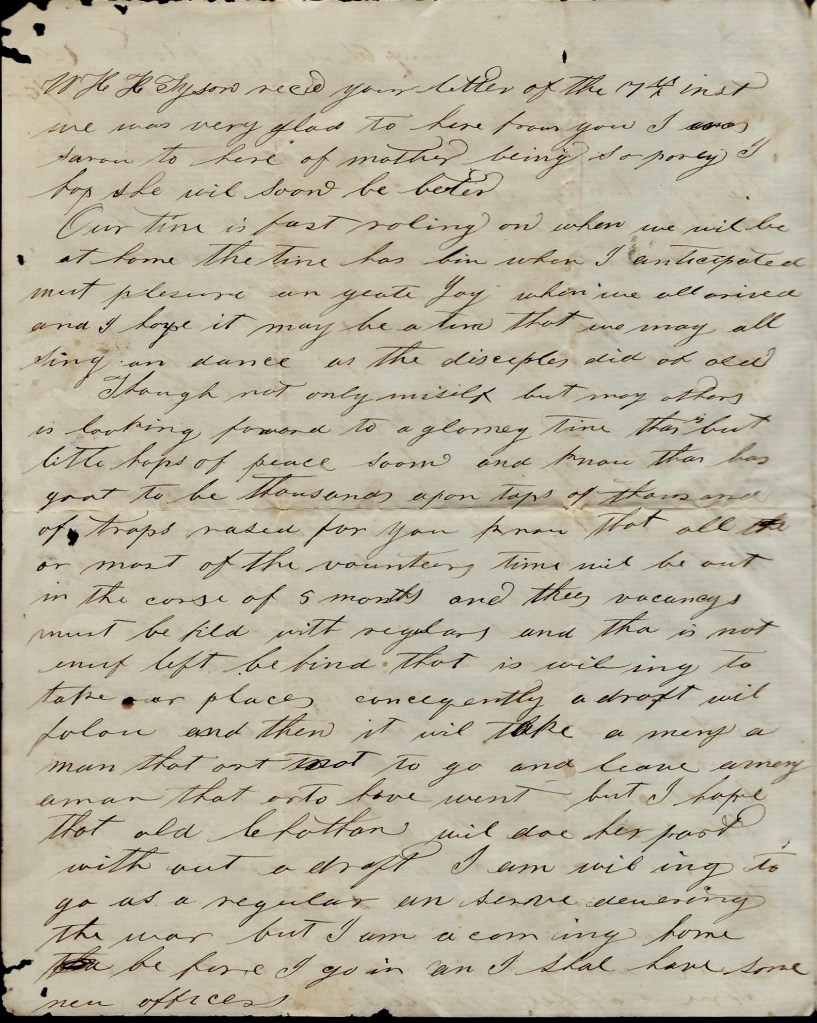 W H H Tyson recd your letter of the 7th inst
we was very glad to here from you I was
sarow to here of mother being so porly I
hop she wil soon be beter
Our time is fast roling on when we wil be
at home the time has bin when I anticipated
mutt plesure an greate Joy when we all arived
and I hope it may be a time that we may all
sing an dance as the disciples did of old
Though not only miself but may others
is looking forward to a glomey time thar is but
little hops of peace soon and know thar has
gout to be thousands apon tops of thousand
of troops rased for you know that all the
or most of the vounteers time wil be out
in the corse of 5 months and thees vacancys
must be fild with regulars and tha is not
enuf left behind that is wil ing to
take our places conceqently a draft wil
folow and then it wil take a meny a
man that ort not to go and leave a meny
a man that orto have went but I hope
that old Chathan wil doe her part
with out a draft I am wil ing to
go as a regular an serve deuering
the war but I am a com ing home
be fore I go in an I shal have some
new officers